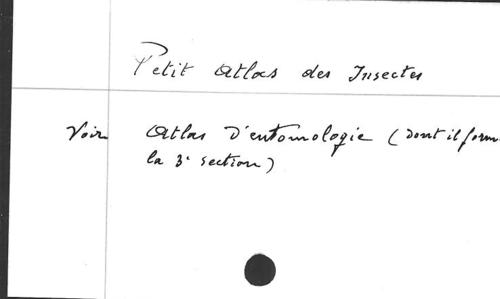 Petit Atlas des Insectes
Voir Atlas D'entomologie (dont il form
la 3e section)